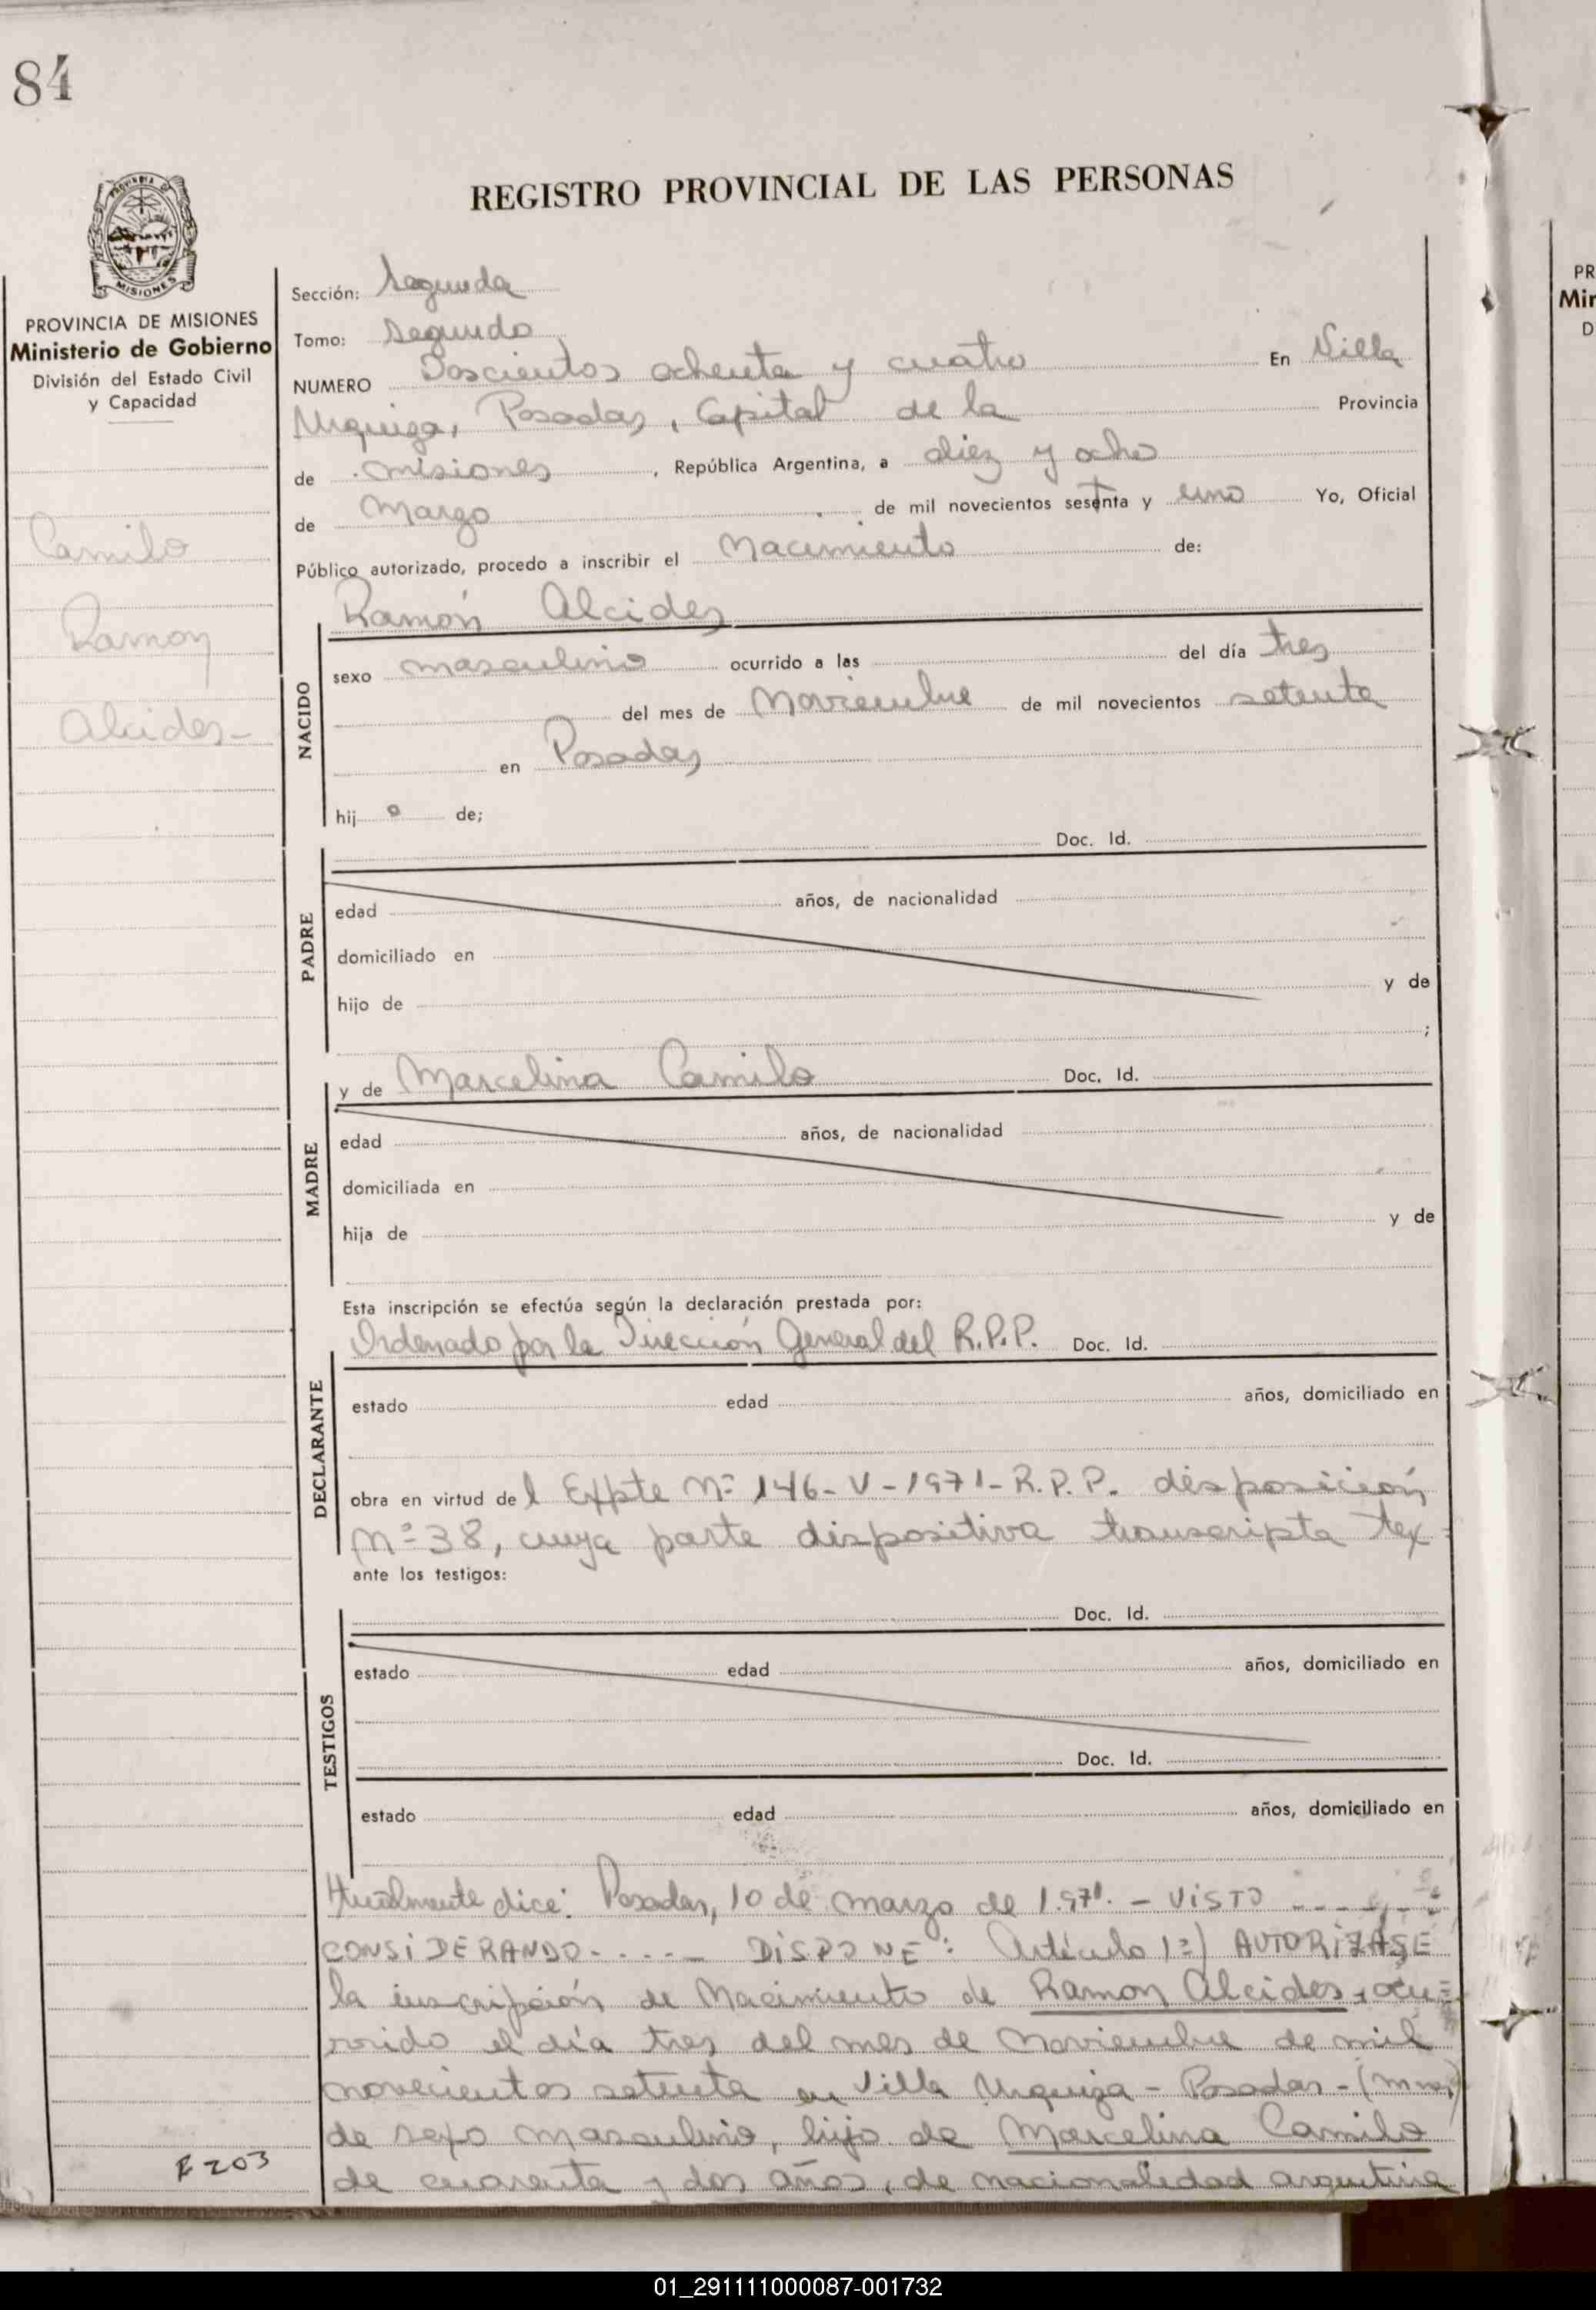 84
REGISTRO PROVINCIAL DE LAS PERSONAS
PROVINCIA DE MISIONES
Ministerio de Gobierno
División del Estado Civil
y Capacidad
MISIONES
Camilo
Ramon
Alcides-
Sección: Segunda
Tomo: Segundo
NUMERO Doscientos ochenta y cuatro En Villa
Urquiza, Posadas, Capital de la Provincia
de misiones, República Argentina, a diez y ocho
de Marzo de mil novecientos sesenta y uno Yo, Oficial
Público autorizado, procedo a inscribir el Nacimiento de:
Ramón Alcides
NACIDO
sexo masculino ocurrido a las del día tres
del mes de Noviembre de mil novecientos setenta
en Posadas
hij o de;
PADRE
Doc. Id.
edad años, de nacionalidad
domiciliado en
hijo de y de
;
MADRE
y de Marcelina Camilo Doc. Id.
edad años, de nacionalidad
domiciliada en
hija de y de
Esta inscripción se efectúa según la declaración prestada por:
Ordenado por la Dirección General del R.P.P. Doc. Id.
DECLARANTE
estado edad años, domiciliado en
obra en virtud de l Expte Nº 146-V-1971-R.P.P. disposición
Nº 38, cuya parte dispositiva transcripta tex
ante los testigos:
TESTIGOS
Doc. Id.
estado edad años, domiciliado en
Doc. Id.
estado edad años, domiciliado en
tualmente dice: Posadas, 10 de marzo de 1.971. - VISTO
CONSIDERANDO - - - - - DISPONE: Artículo 1º) AUTORIZASE
la inscripción de Nacimiento de Ramon Alcides, ocu=
rrido el día tres del mes de Noviembre de mil
novecientos setenta en Villa Urquiza - Posadas - (Mnes)
de sexo masculino, hijo de Marcelina Camilo
de cuarenta y dos años, de nacionalidad argentina
E 203
PR
Min
D
01_291111000087-001732